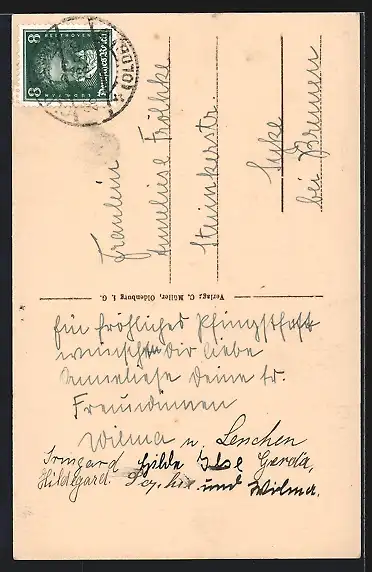 8 BEETHOVEN 8
Deutsches Reich
(OLDB)
Fräulein
Anneliese Fröhlke
Steimkerstr.
Syke
bei Bremen
Verlag: C. Müller, Oldenburg i. G.
Ein fröhliches Pfingstfest
wünschen Dir liebe
Anneliese Deine tr.
Freundinnen
Wilma u. Lenchen
Irmgard Hilde Ilse Gerda,
Hildegard und Wilma.